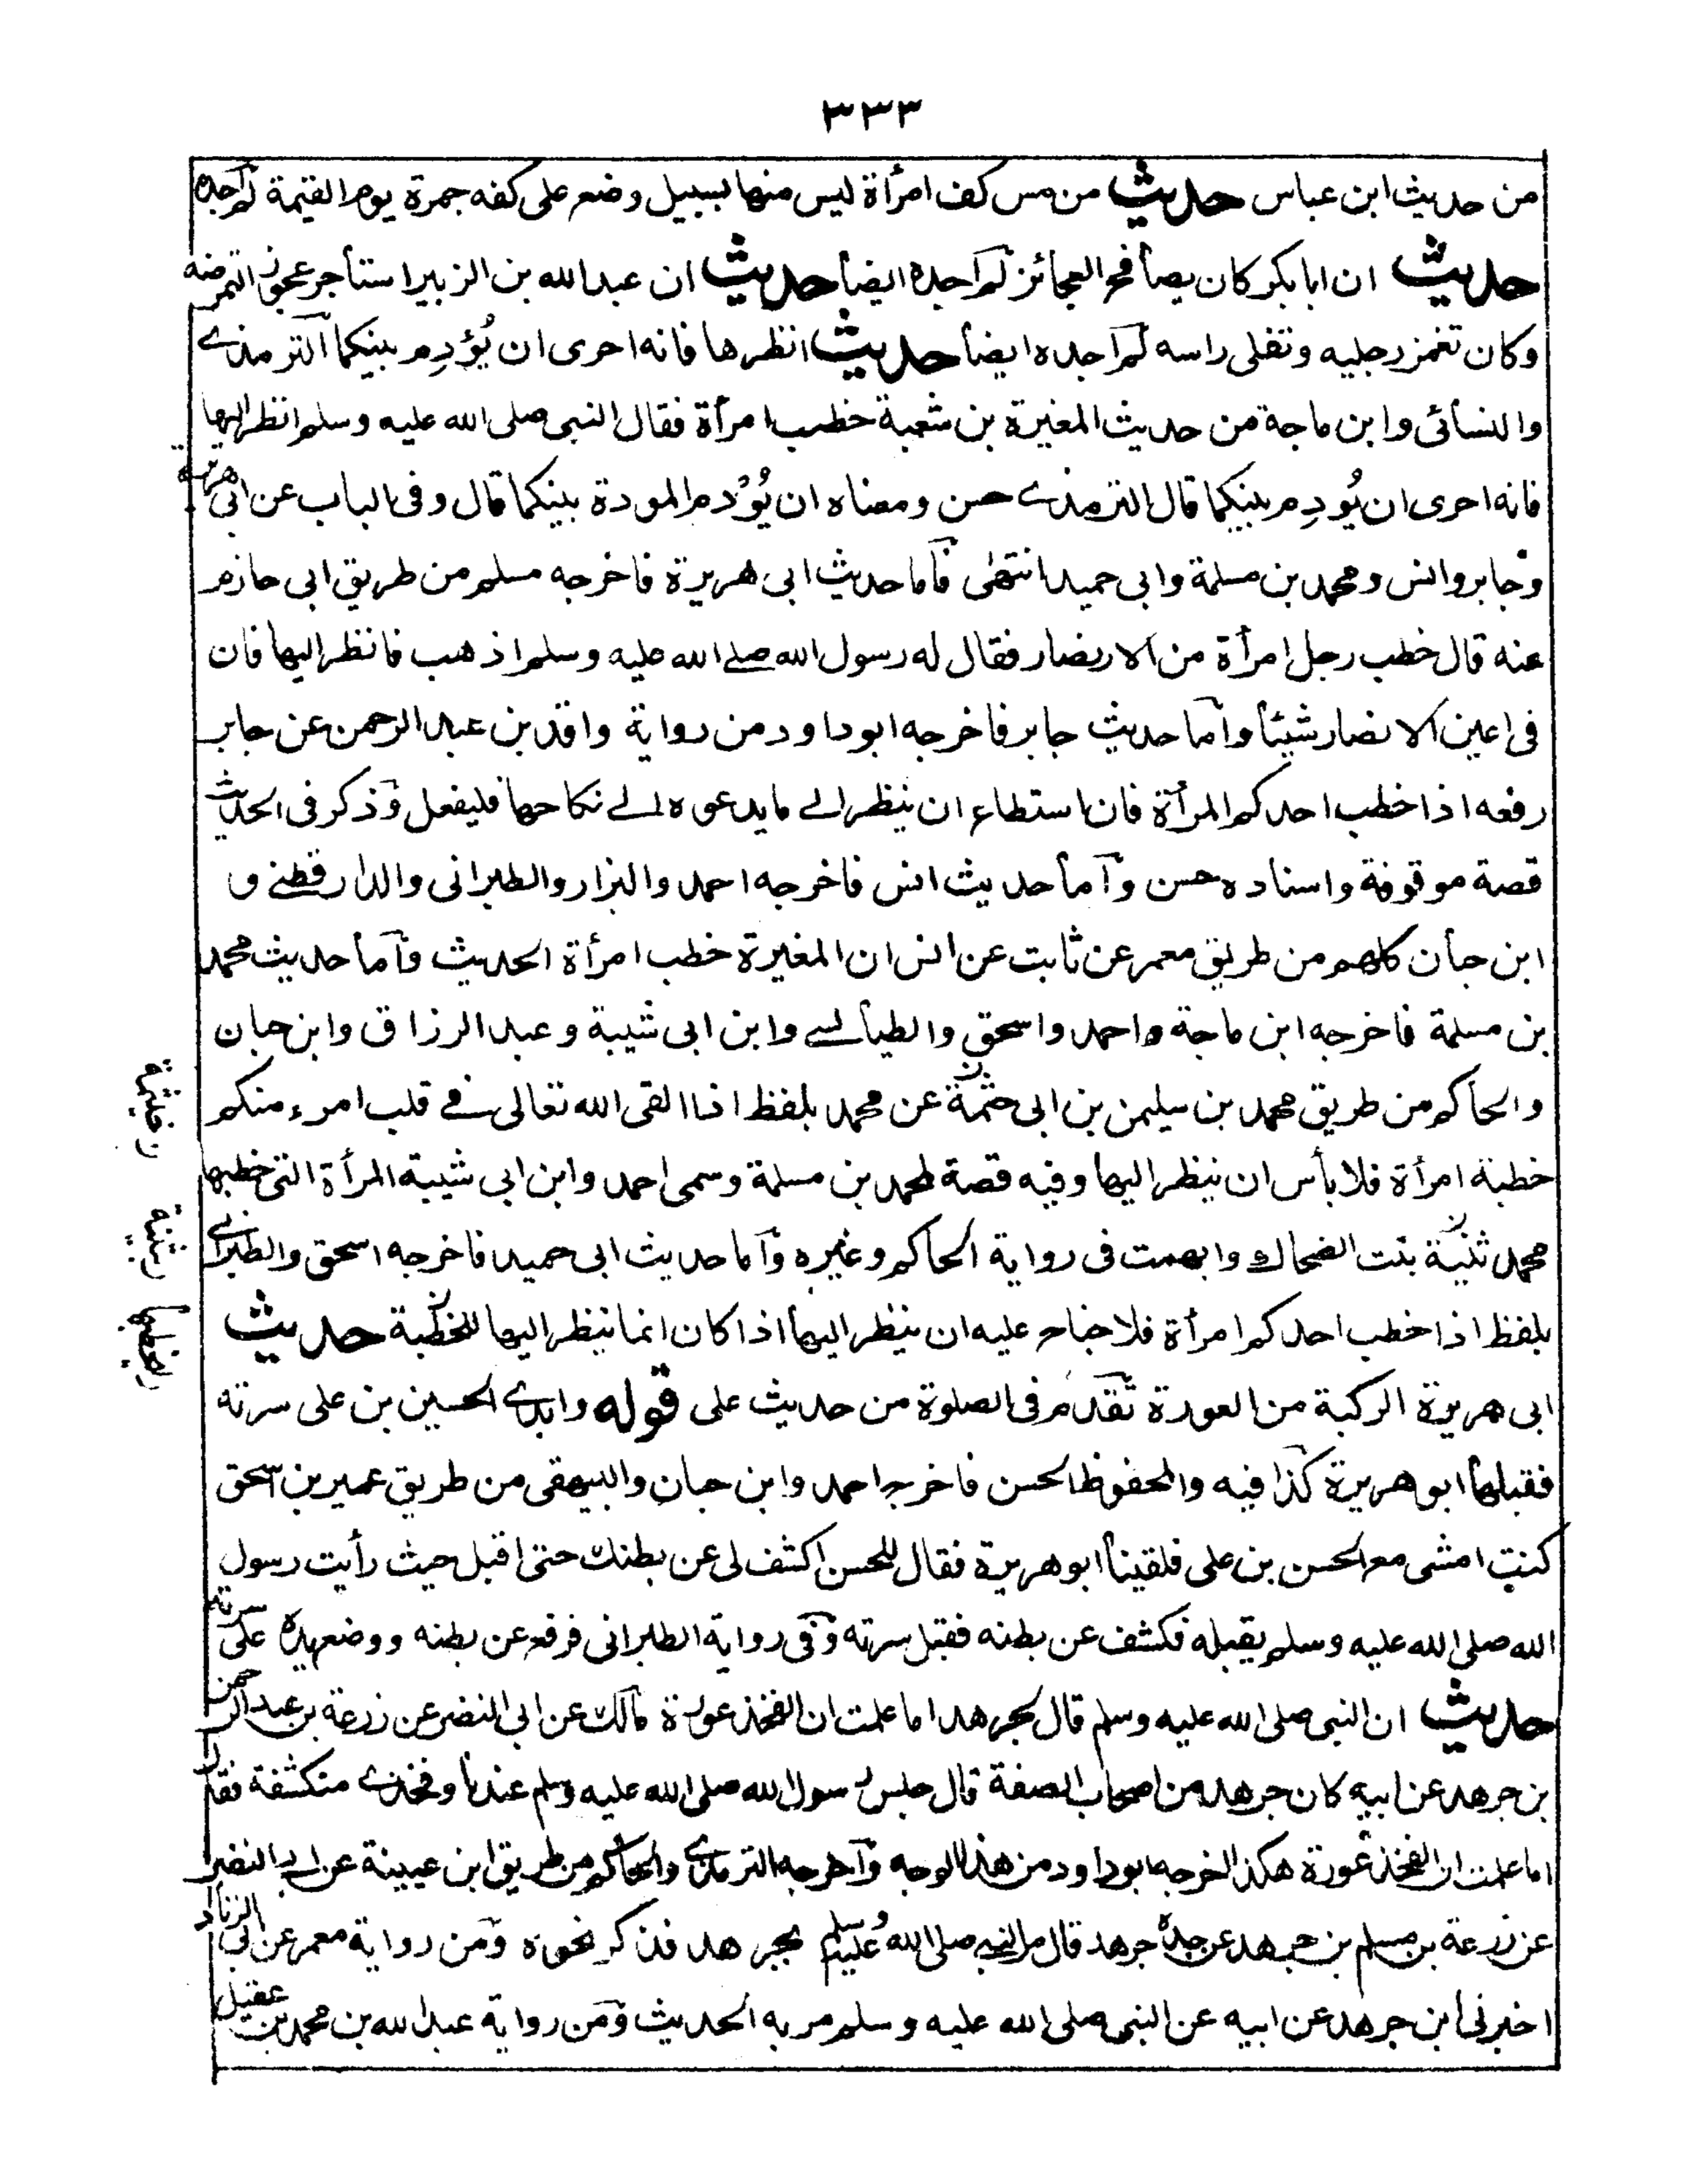 ٣٣٣
من حديث ابن عباس حديث من مس كف امرأة ليس منها بسبيل وضع على كفه جمرة يوم القيمة لم اجده
حديث ان ابا بكر كان يصافح العجائز لم اجده ايضا حديث ان عبد الله بن الزبير استأجر عجوزا لتمرضه
وكان تغمز رجليه وتفلى راسه لم اجده ايضا حديث انظرها فانه احرى ان يُؤدِم بينكما الترمذے
والنسائى وابن ماجة من حديث المغيرة بن شعبة خطب امرأة فقال النبى صلى الله عليه وسلم انظر اليها
فانه احرى ان يُودِم بينكما قال الترمذے حسن ومعناه ان يُؤدم المودة بينكما قال وفى الباب عن ابى هريرة
وجابر وانس ومحمد بن مسلمة وابى حميد انتهى فاما حديث ابى هريرة فاخرجه مسلم من طريق ابى حازم
عنه قال خطب رجل امرأة من الانصار فقال له رسول الله صلے الله عليه وسلم اذهب فانظر اليها فان
فى اعين الانصار شيئا واما حديث جابر فاخرجه ابو داود من رواية واقد بن عبد الرحمن عن جابر
رفعه اذا خطب احدكم المرأة فان استطاع ان ينظر الے ما يدعوه الے نكاحها فليفعل وذكر فى الحديث
قصة موقوفة واسناده حسن واما حديث انس فاخرجه احمد والبزار والطبرانى والدارقطنے و
ابن حبان كلهم من طريق معمر عن ثابت عن انس ان المغيرة خطب امرأة الحديث واما حديث محمد
بن مسلمة فاخرجه ابن ماجة واحمد واسحق والطيالسے وابن ابى شيبة وعبد الرزاق وابن حبان
والحاكم من طريق محمد بن سليمن بن ابى حثمة عن محمد بلفظ اذا القى الله تعالى فے قلب امرء منكم
خطبة امرأة فلا بأس ان ينظر اليها وفيه قصة لمحمد بن مسلمة وسمى احمد وابن ابى شيبة المرأة التى خطبها
محمد ثبيتة بنت الضحاك وابهمت فى رواية الحاكم وغيره واما حديث ابى حميد فاخرجه اسحق والطبرانے
بلفظ اذا خطب احدكم امرأة فلا جناح عليه ان ينظر اليها اذا كان انما ينظر اليها للخطبة حديث
ابى هريرة الركبة من العورة تقدم فى الصلوة من حديث على قوله وابدے الحسين بن على سرته
فقبلها ابو هريرة كذا فيه والمحفوظ الحسن فاخرج احمد وابن حبان والبيهقى من طريق عمير بن اسحق
كنت امشى مع الحسن بن على فلقينا ابو هريرة فقال للحسن اكشف لى عن بطنك حتى اقبل حيث رأيت رسول
الله صلى الله عليه وسلم يقبله فكشف عن بطنه فقبل سرته وفى رواية الطبرانى فرفع عن بطنه ووضع يده على سرته
حديث ان النبى صلى الله عليه وسلم قال لجرهد اما علمت ان الفخذ عورة مالك عن ابى النضر عن زرعة بن عبد الرحمن
بن جرهد عن ابيه كان جرهد من اصحاب الصفة قال جلس رسول الله صلى الله عليه وسلم عندنا وفخذے منكشفة فقال
اما علمت ان الفخذ عورة هكذا اخرجه ابو داود من هذا الوجه واخرجه الترمذے والحاكم من طريق ابن عيينة عن ابى النضر
عن زرعة بن مسلم بن جرهد عن جده جرهد قال مر النبى صلى الله عليه وسلم بجرهد فذكر نحوه ومن رواية معمر عن ابى الزناد
اخبرنى ابن جرهد عن ابيه عن النبى صلى الله عليه وسلم مر به الحديث ومن رواية عبد الله بن محمد بن عقيل